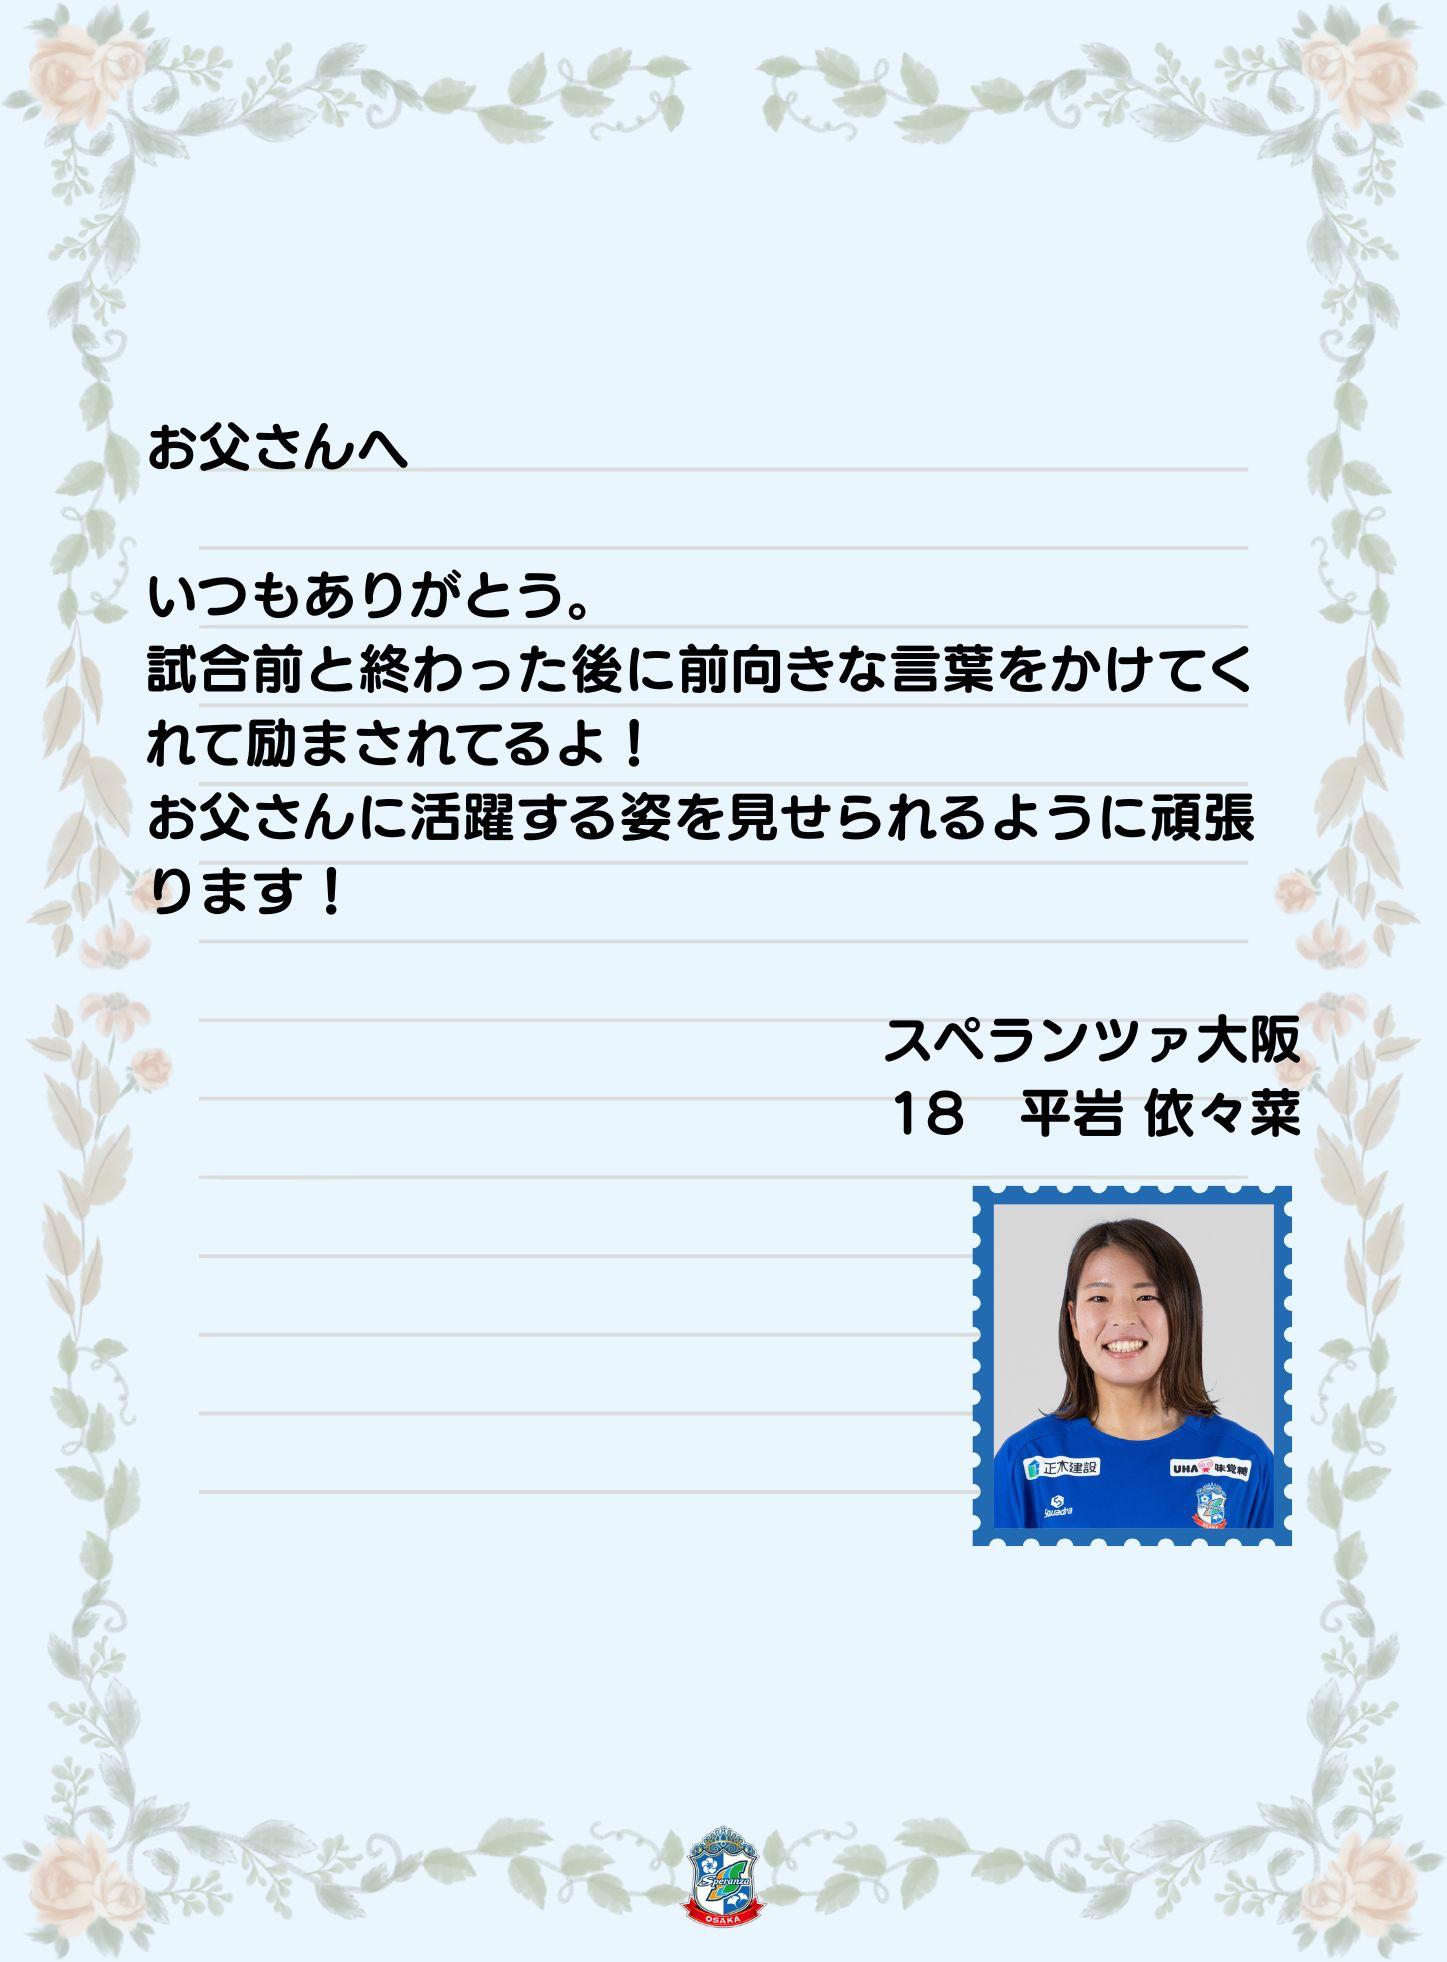 お父さんへ
いつもありがとう。
試合前と終わった後に前向きな言葉をかけてく
れて励まされてるよ！
お父さんに活躍する姿を見せられるように頑張
ります！
スペランツァ大阪
18　平岩 依々菜
正木建設
UHA 味覚糖
Squadra
OSAKA
Speranza
OSAKA